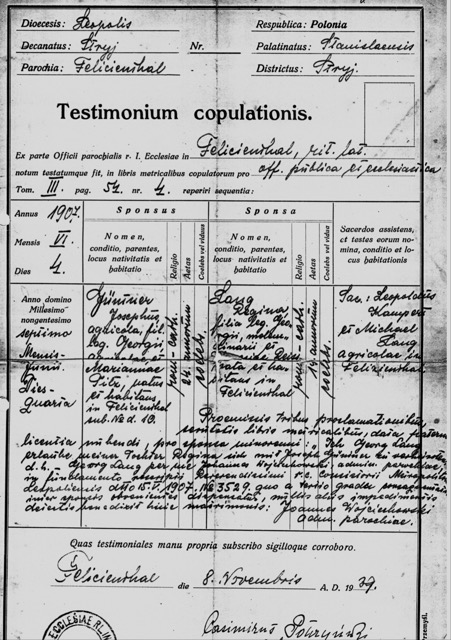 Dioecesis: Leopolis
Respublica: Polonia
Decanatus: Stryj
Nr.
Palatinatus: Stanislaensis
Parochia: Felicienthal
Districtus: Stryj.
Testimonium copulationis.
Ex parte Officii parochialis r. l. Ecclesiae in Felicienthal, rit. lat.
notum testatumque fit, in libris metricalibus copulatorum pro off. publica, et ecclesiastica
Tom. III. pag. 54. nr. 4. reperiri sequentia:
Annus 1907.
Mensis VI.
Dies 4.
Sponsus
Nomen,
conditio, parentes,
locus nativitatis et
habitatio
Religio
Aetas
Coelebs vel viduus
Sponsa
Nomen,
conditio, parentes,
locus nativitatis et
habitatio
Religio
Aetas
Coelebs vel vidua
Sacerdos assistens,
et testes eorum no-
mina, conditio et lo-
cus habitationis
Anno domino
Millesimo
nongentesimo
septimo
Mensis
Junii
Dies
Quarta
Josephus
agricola, fil.
leg. Georgii
agricolae et
Mariannae
Tilz, natus
et habitans
in Felicienthal
sub No d. 13.
rom-cath.
24 annorum
coelebs.
Lang
Regina
filia leg. Geo-
rgii,
nata et ha-
bitans in
Felicienthal
rom-cath.
annorum
coelebs.
Sac: Leopoldus
et Michael
Lang
agricolae in
Felicienthal
Praemissis tribus proclamationibus,
libris metricalibus, data paterna
licentia nubendi, pro sponsa minorenni: "Ich Georg Lang
erlaube meiner Tochter Regina sich mit Joseph
d. h. Georg Lang per me Johannes Wojciechowski admin. parochiae,
in fundamento rescripti Reverendissimi r. l. Consistorii Metropolit.
Leopoliensis dtto 15.V.1907. No 3529. quo a tertio gradu
inter sponsos obveniente dispensatus, nullis aliis impedimentis
detectis benedixit huic matrimonio: Joannes Wojciechowski
adm. parochiae.
Quas testimoniales manu propria subscribo sigilloque corroboro.
Felicienthal die 8. Novembris A. D. 1939.
ECCLESIAE
Casimirus